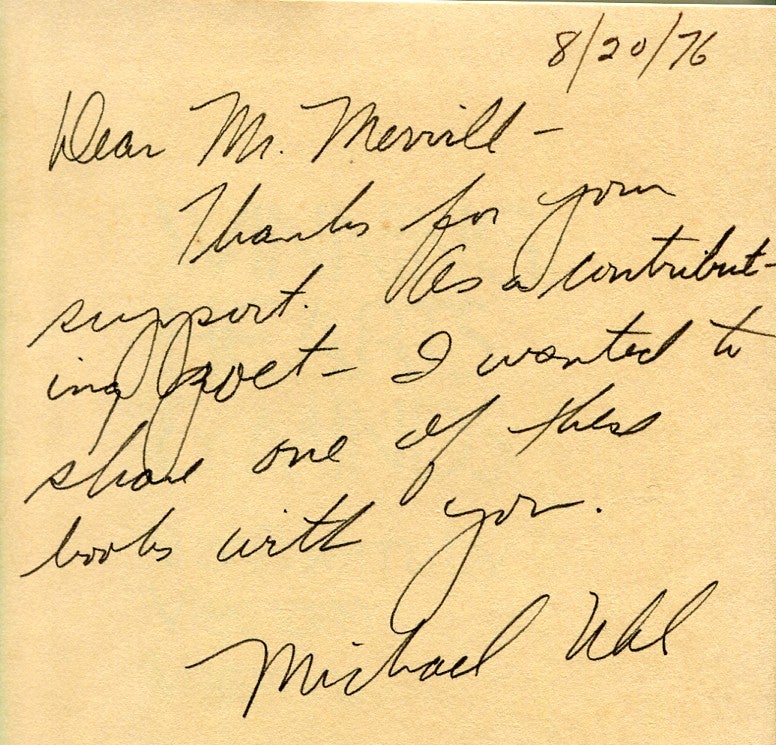 8/20/76
Dear Mr. Merrill -
Thanks for your
support. As a contribut-
ing poet - I wanted to
share one of these
books with you.
Michael Uhl